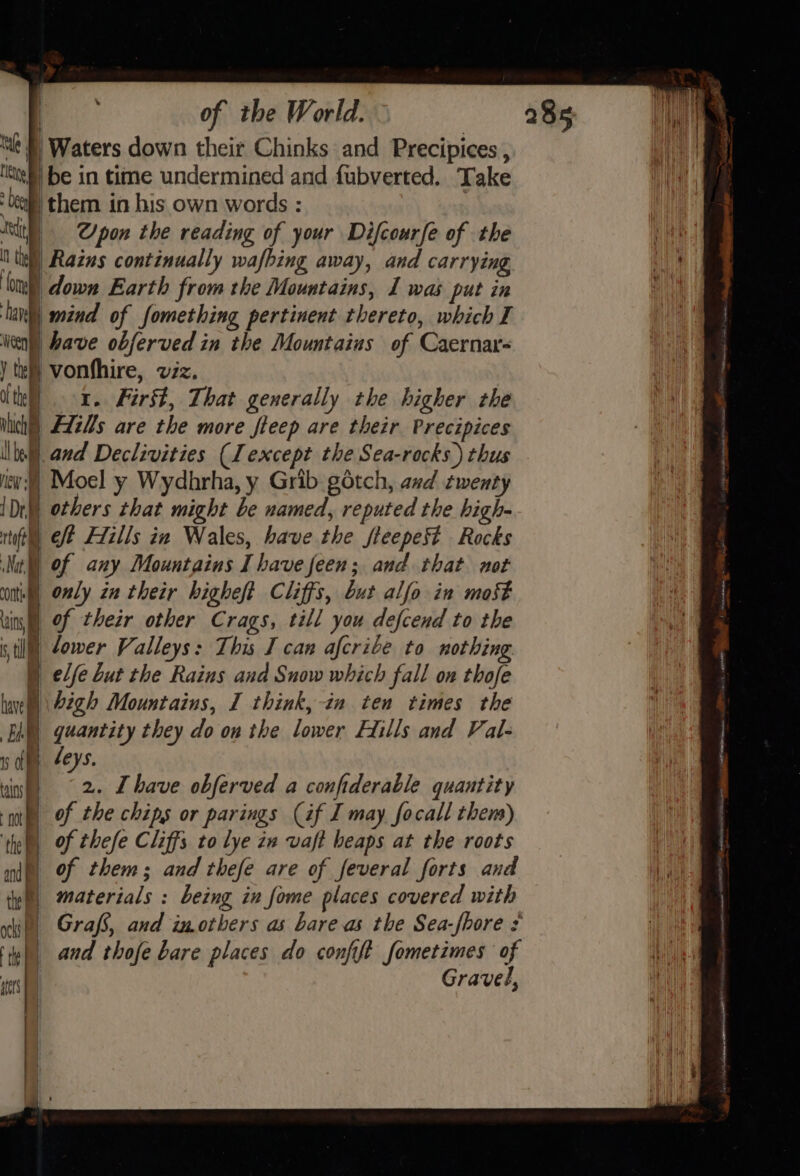 of the World. 285
Waters down their Chinks and Precipices,
be in time undermined and ſubverted. Take
them in his own words :
Upon the reading of your Diſcourſe of the
Rains continually waſhing away, and carrying
down Earth from the Mountains, I was put in
mind of ſomething pertinent thereto, which I
have obſerved in the Mountains of Caernar-
vonſhire, viz.
1. Firſt, That generally the higher the
Hills are the more ſteep are their Precipices
and Declivities (I except the Sea-rocks) thus
Moel y Wydhrha, y Grib gôtch, and twenty
others that might be named, reputed the high-
eſt Hills in Wales, have the ſteepeſt Rocks
of any Mountains I have ſeen; and that not
only in their higheſt Cliffs, but alſo in moſt
of their other Crags, till you deſcend to the
lower Valleys: This I can aſcribe to nothing
elſe but the Rains and Snow which fall on thoſe
high Mountains, I think, in ten times the
quantity they do on the lower Hills and Val-
leys.
2. I have obſerved a conſiderable quantity
of the chips or parings (if I may ſo call them)
of theſe Cliffs to lye in vaſt heaps at the roots
of them; and theſe are of ſeveral ſorts and
materials : being in ſome places covered with
Graſs, and in others as bare as the Sea-ſhore :
and thoſe bare places do conſiſt ſometimes of
Gravel,